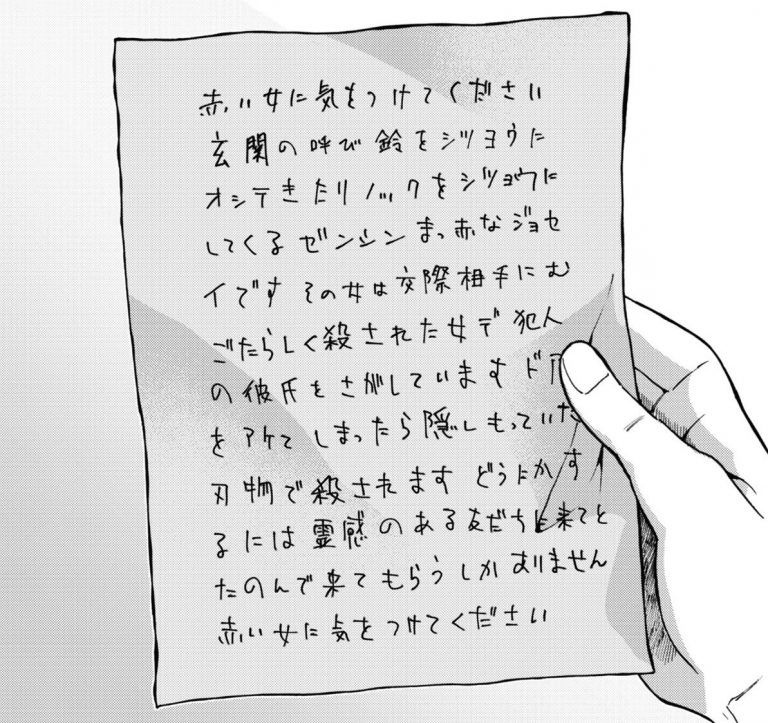 赤い女に気をつけてください
玄関の呼び鈴をシツヨウに
オシテきたりノックをシツヨウに
してくるゼンシンまっ赤なジョセ
イです その女は交際相手にむ
ごたらしく殺された女デ犯人
の彼氏をさがしています ドア
をアケてしまったら隠しもっていた
刃物で殺されます どうにかす
るには霊感のある友だちに来てと
たのんで来てもらうしかありません
赤い女に気をつけてください